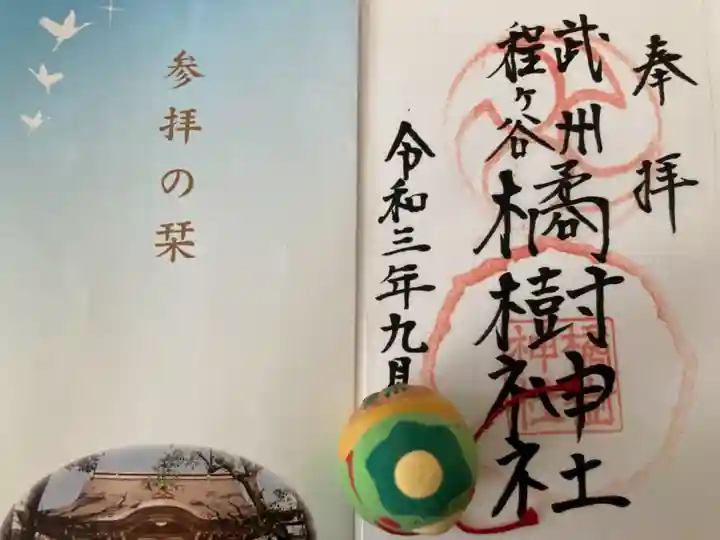 奉拝
武州
程ヶ谷
橘樹神社
令和三年九月
参拝の栞